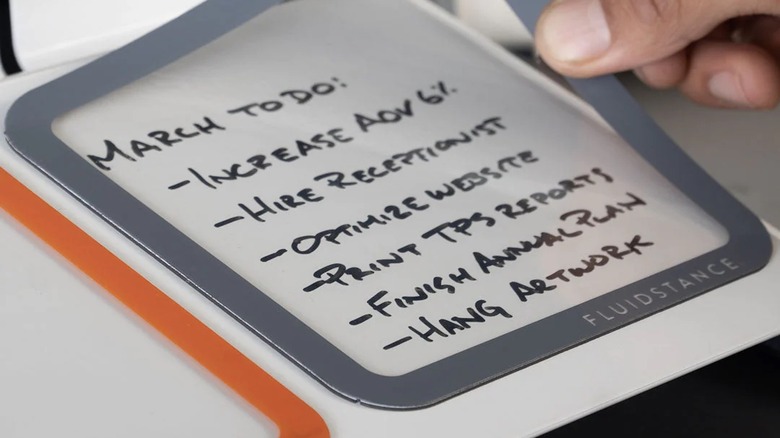 MARCH TO DO:
- INCREASE AOV 6%
- HIRE RECEPTIONIST
- OPTIMIZE WEBSITE
- PRINT TPS REPORTS
- FINISH ANNUAL PLAN
- HANG ARTWORK
FLUIDSTANCE